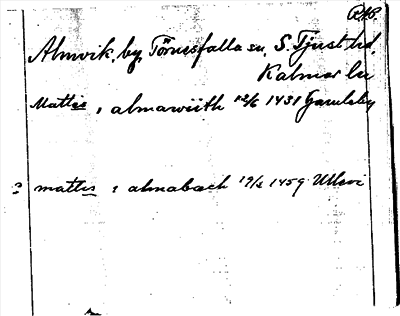 RAP.
Almvik, by, Törnesfalla sn, S. Tjust hd,
Kalmar län
Mattis i almawiith 12/6 1431 Gamleby
? mattis i almabæch 19/2 1459 Ullevi